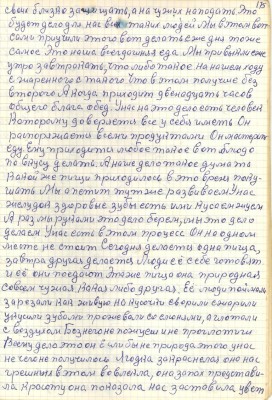 свою близко защищать, а на чужих нападать Это
будет делодля нас всех таких людей Мы в этом вот
сами приучили этого вот делать каждый то же
самое Это наша всегдашняя еда Мы привыкли уже
утро завтракать, что либо такое На нашем ходу
с жаренного с такого что в этом получше без
второго А когда приходит двенадцать часов
общего блага обед. У нас на это дело есть человек
Которому доверяется все у себя иметь Он
распоряжается всеми продуктами Он мастерит
еду Ему приходится любое такое вот блюдо
по вкусу делать. А наше дело такое думать
Какой же пищи приходилось в это время поку
шать Мы аппетит тут же развиваем У нас
желудок здоровые зубы есть ими кусаем жуем
А раз мы руками это дело берем, мы это дело
делаем У нас есть в этом процесс Он на одном
месте не стоит Сегодня делается одна пища,
завтра другая делается Люди её себе готовят
и её они поедают Эта же пища она природная
совсем чужая Какая либо другая. Её люди поймали
зарезали как живую на кусочки сварили сжарили
укусили зубами прожевали со слюнями, а глотали
с воздухом Без него не покушешь и не проглотишь
Всему дело это он был бы не природа этого у нас
не чего не получилось Ягодка закраснелась она нас
грешных в этом вовлекла, она запах представи
ла красоту она показала нас заставила цвет